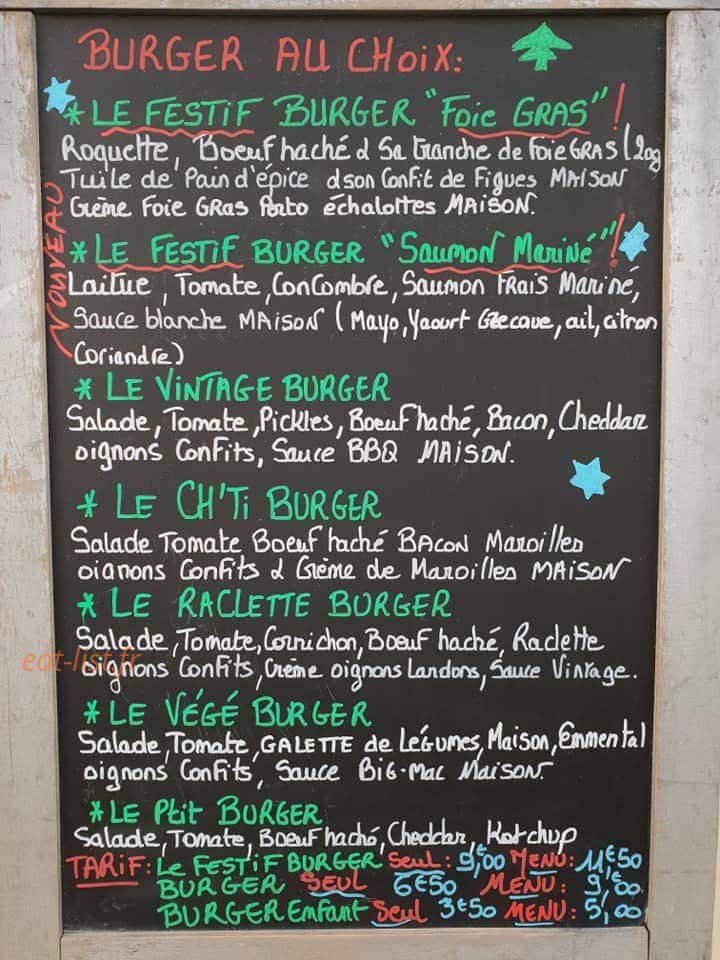 BURGER AU CHOIX:
* LE FESTIF BURGER "FOIE GRAS"!
Roquette, Boeuf haché & Sa tranche de Foie GRAS (20g
Tuile de Pain d'épice & son Confit de Figues MAISON
Crème Foie GRas Porto échalottes MAISON.
NOUVEAU
* LE FESTIF BURGER "Saumon Mariné"!
Laitue, Tomate, ConCombre, Saumon FRais Mariné,
Sauce blanche MAISON (Mayo, Yaourt Grecque, ail, citron
Coriandre)
* LE VINTAGE BURGER
Salade, Tomate, Pickles, Boeuf haché, Bacon, Cheddar
oignons Confits, Sauce BBQ MAISON.
* LE CH'Ti BURGER
Salade Tomate Boeuf haché BACON Maroilles
oignons Confits & Crème de Maroilles MAISON
* LE RACLETTE BURGER
Salade, Tomate, Cornichon, Boeuf haché, Raclette
oignons Confits, Crème oignons Lardons, Sauce Vintage.
eat-list.fr
* LE VÉGÉ BURGER
Salade, Tomate, GALETTE de LéGUMES, Maison, Emmental
oignons Confits, Sauce BiG-Mac MAISON.
* LE Ptit BURGER
Salade, Tomate, Boeuf haché, Cheddar, Ketchup
TARIF: Le FESTIF BURGER Seul: 9,€00 MENU: 11€50
BURGER SEUL 6€50 MENU: 9,€00
BURGER Enfant Seul 3€50 MENU: 5,€00